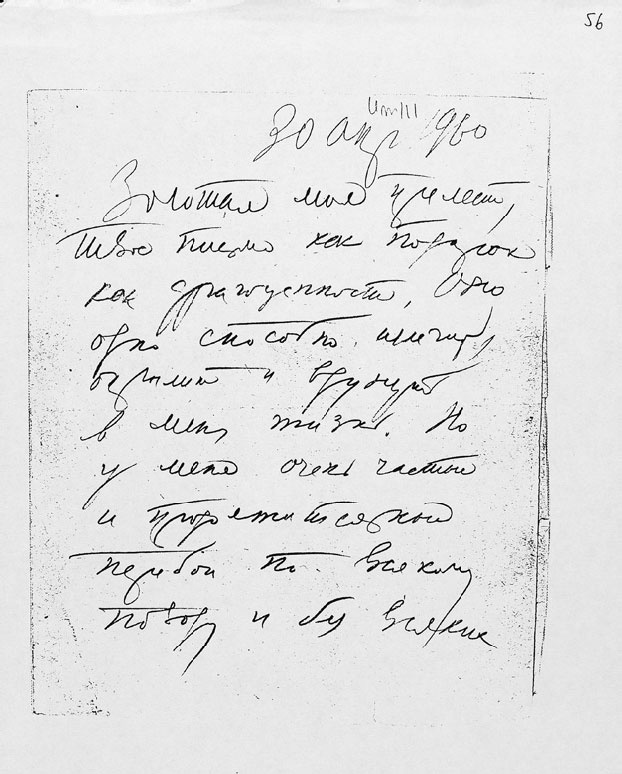 56
30 апр 1960
Золотая моя прелесть,
твое письмо как подарок
как драгоценность. Оно
одно способно излечить,
окрылить и вдунуть
в меня жизнь. Но
у меня очень частые
и продолжительные
перебои по всякому
поводу и без всяких